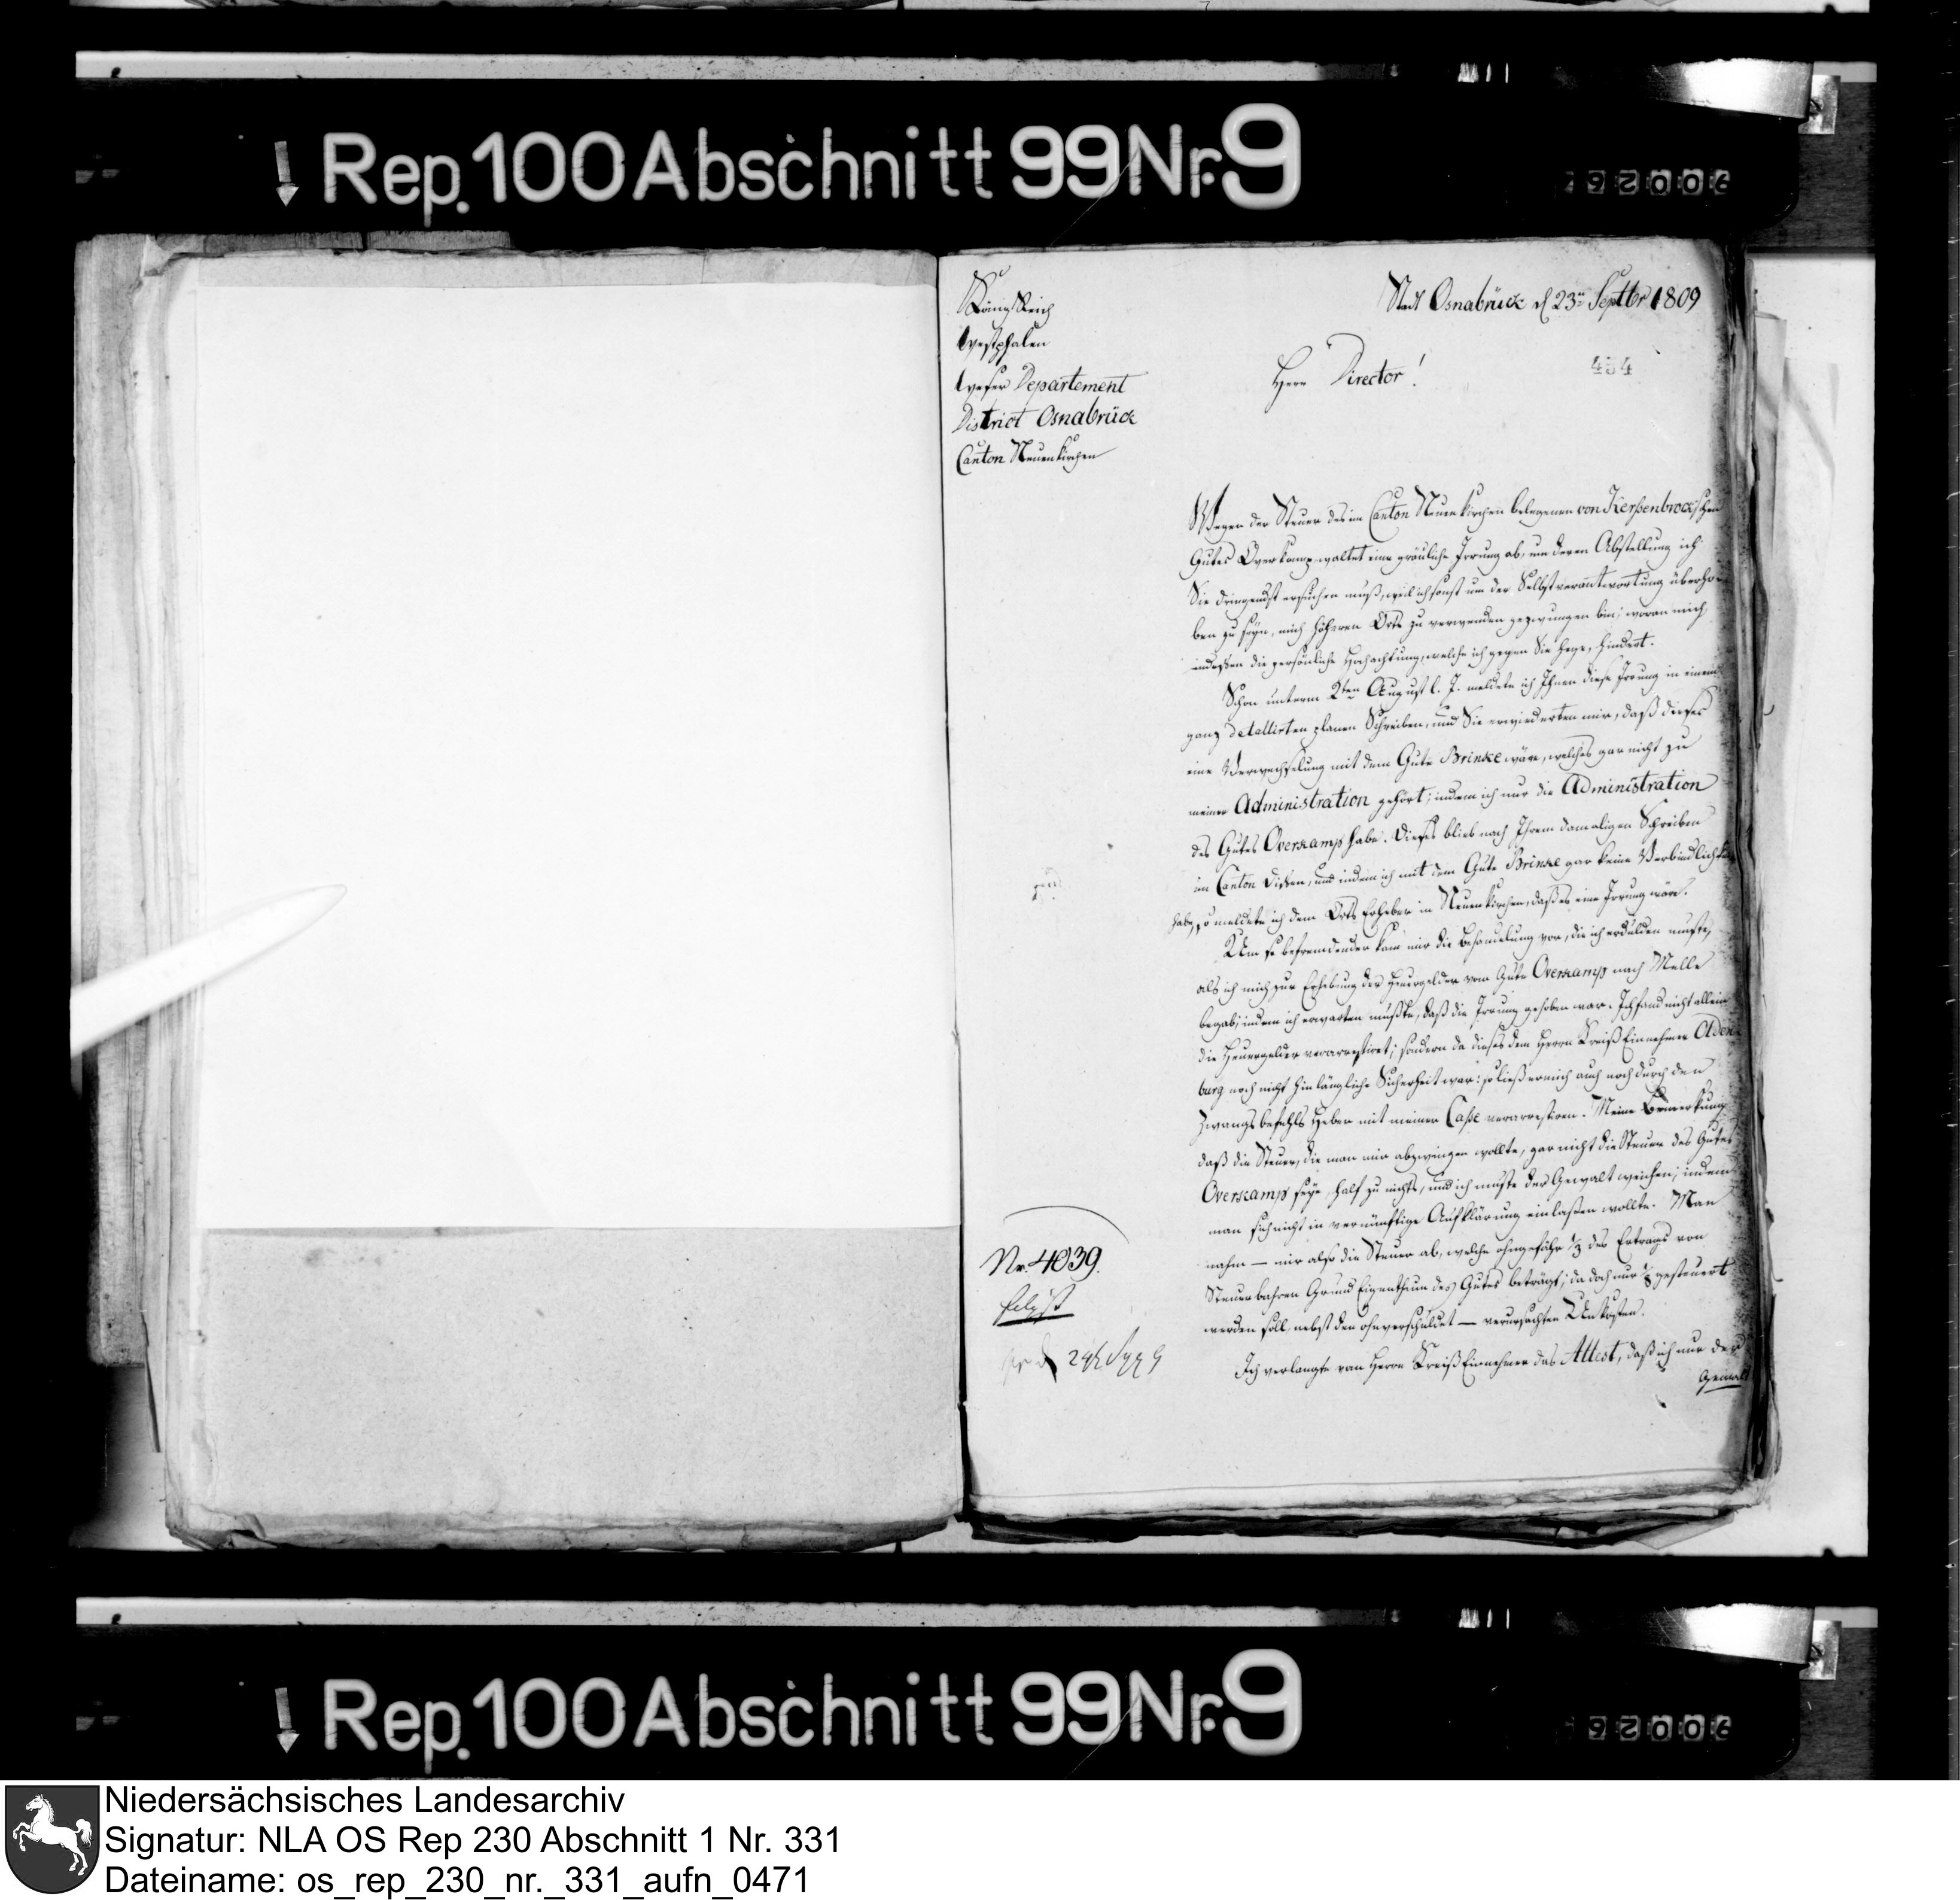 Rep. 100 Abschnitt 99 Nr. 9
Königreich
Westphalen
Weser Departement
District Osnabrück
Canton Neuenkirchen
Stadt Osnabrück d 23ten Septbr 1809
Herr Director!
454
Wegen der Steuer des im Canton Neuenkirchen belegenen von Kerßenbrockschen
Gutes Overkamp waltet eine gräuliche Irrung ob, um deren Abstellung ich
Sie dringendst ersuchen muß, weil ich sonst um der Selbstverantwortung überho-
ben zu seyn, mich höheren Orts zu verwenden gezwungen bin; woran mich
indessen die persönliche Hochachtung, welche ich gegen Sie hege, hindert.
Schon unterm 2ten August l. J. meldete ich Ihnen diese Irrung in einem
ganz detallirten planen Schreiben, und Sie erwiederten mir, daß dieses
eine Verwechselung mit dem Gute Brinke wäre, welches gar nicht zu
meiner Administration gehört; indem ich nur die Administration
des Gutes Overkamp habe. Dieses blieb nach Ihrem damaligen Schreiben
im Canton Dissen, und indem ich mit dem Gute Brinke gar keine Verbindlichkeit
habe, so meldete ich dem Orts Erheber in Neuenkirchen, daß es eine Irrung wäre.
Um so befremdender kam mir die Behandelung vor, die ich erdulden mußte,
als ich mich zur Erhebung der Heuergelder vom Gute Overkamp nach Melle
begab; indem ich erwarten mußte, daß die Irrung gehoben war. Ich fand nicht allein
die Heuergelder verarrestiret; sondern da dieses dem Herrn Kreiß Einnehmer Olden-
burg noch nicht hinlängliche Sicherheit war: so ließ er mich auch noch durch den
Zwangsbefehls Heber mit meiner Caße verarrestiren. Meine Bemerkung,
daß die Steuer, die man mir abzwingen wollte, gar nicht die Steuer des Gutes
Overkamp seye, half zu nichts, und ich mußte der Gewalt weichen; indem
man sich nicht in vernünftige Aufklärung einlaßen wollte. Man
nahm — mir also die Steuer ab, welche ohngefähr 1/3 des Ertrags von
Steuerbahren Grund Eigenthum des Gutes beträgt; da doch nur 1/8 gesteuert
werden soll, nebst den ohnverschuldet — verursachten Unkosten.
Ich verlangte vom Herrn Kreiß Einnehmer das Attest, daß ich nur der
Gewalt
Nr. 4039.
Rep. 100 Abschnitt 99 Nr. 9
Niedersächsisches Landesarchiv
Signatur: NLA OS Rep 230 Abschnitt 1 Nr. 331
Dateiname: os_rep_230_nr._331_aufn_0471